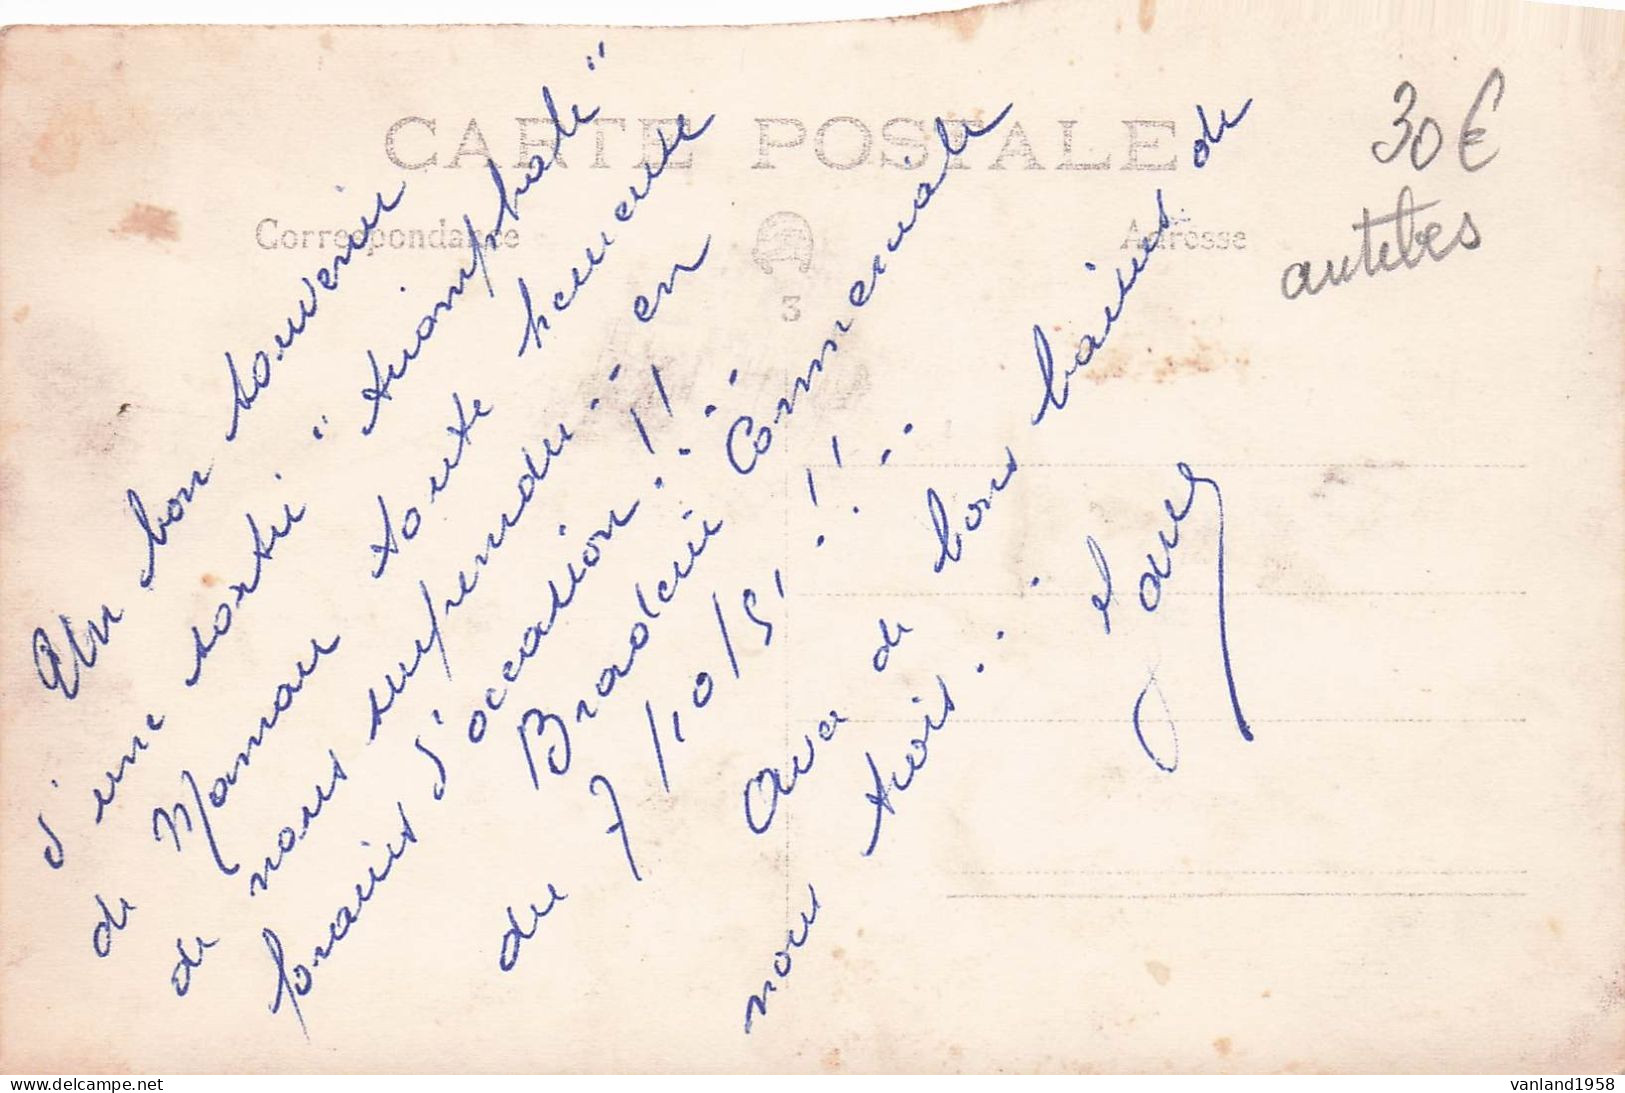 CARTE POSTALE
Correspondance
Adresse
3
30 €
antibes
Un bon souvenir
d'une sortie "triomphale"
de Maman toute heureuse
de nous surprendre : en
plein d'occasion !!
Braderie Commerciale
du 7/10/51 !!!
Avec de bons baisers de
nous trois :
vanland1958
www.delcampe.net